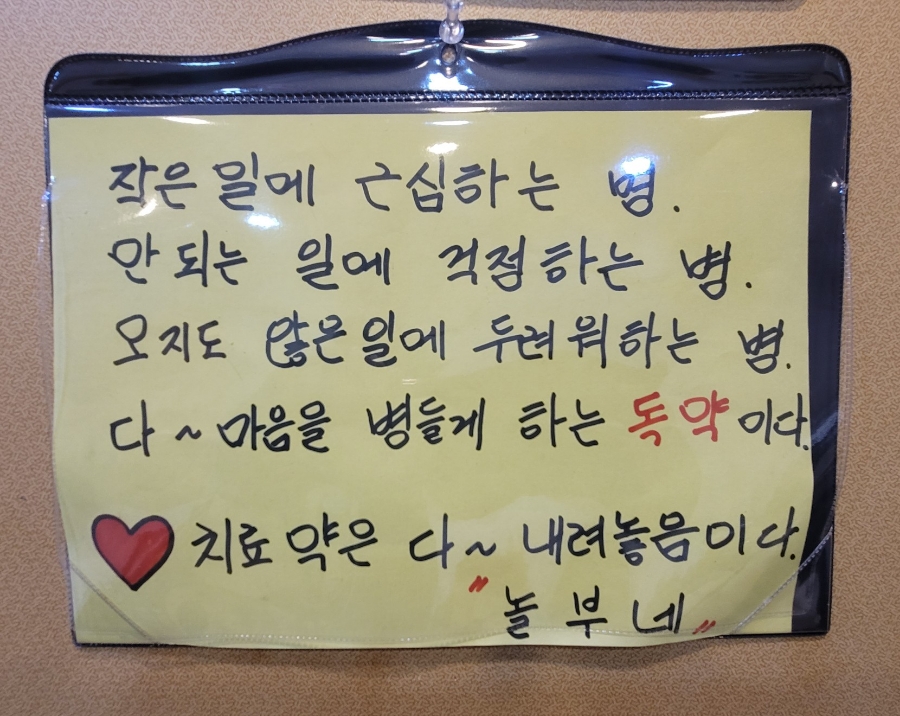 작은 일에 근심하는 병.
안 되는 일에 걱정하는 병.
오지도 않은 일에 두려워하는 병.
다~ 마음을 병들게 하는 독약이다.
치료약은 다~ 내려놓음이다.
"놀부네"